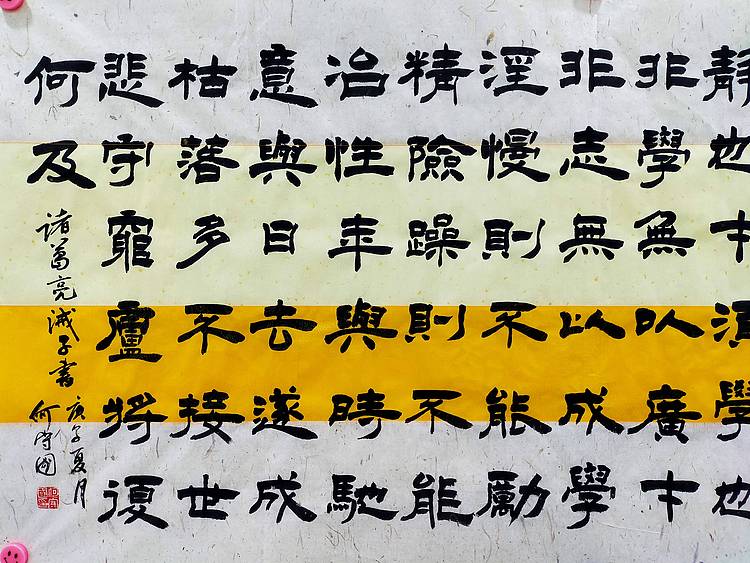 靜也才須學也
非學無以廣才
非志無以成學
淫慢則不能勵
精險躁則不能
治性年與時馳
意與日去遂成
枯落多不接世
悲守窮廬將復
何及
諸葛亮誡子書
庚子夏月